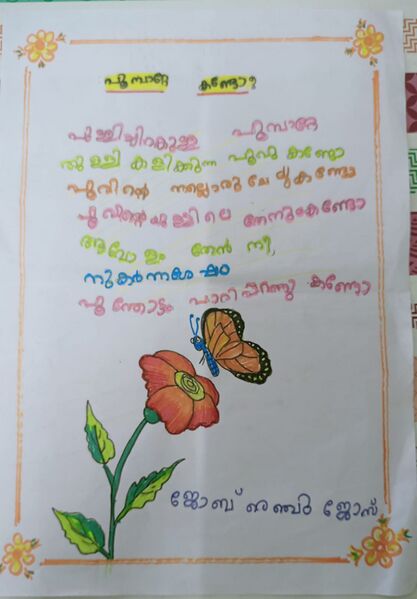 പൂമ്പാറ്റ കണ്ടോ?
പുള്ളിച്ചിറകുള്ള പൂമ്പാറ്റേ
തുള്ളി കളിക്കുന്ന പൂവു കണ്ടോ
പൂവിന്റെ നല്ലൊരു ചേലുകണ്ടോ
പൂവിന്റെയുള്ളിലെ തേനുകണ്ടോ
ആവോളം തേൻ നീ,
നുകർന്നശേഷം
പൂന്തോട്ടം പാറിപ്പറന്നു കണ്ടോ
ജോബ് ജോസ്